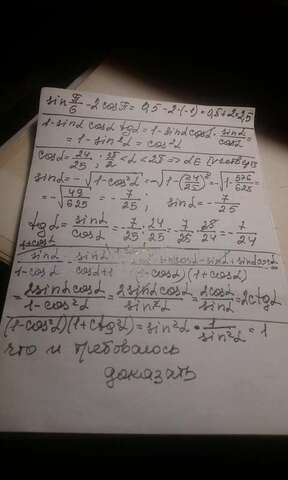 sin π/6 - 2cos π = 0,5 - 2·(-1) = 0,5 + 2 = 2,5
1 - sinα cosα tgα = 1 - sinα cosα · sinα/cosα =
= 1 - sin²α = cos²α
cosα = 24/25
sinα = -√(1 - cos²α) = -√(1 - (24/25)²) = -√(1 - 576/625 =
= -√(49/625) = -7/25 ; sinα = -7/25
tgα = sinα/cosα = -7/25 : 24/25 = -7/25 · 25/24 = -7/24
= 2sinαcosα/(1 - cos²α) = 2sinαcosα/sin²α = 2cosα/sinα = 2ctgα
(1 - cos²α)(1 + ctg²α) = sin²α · 1/sin²α = 1
что и требовалось
доказать